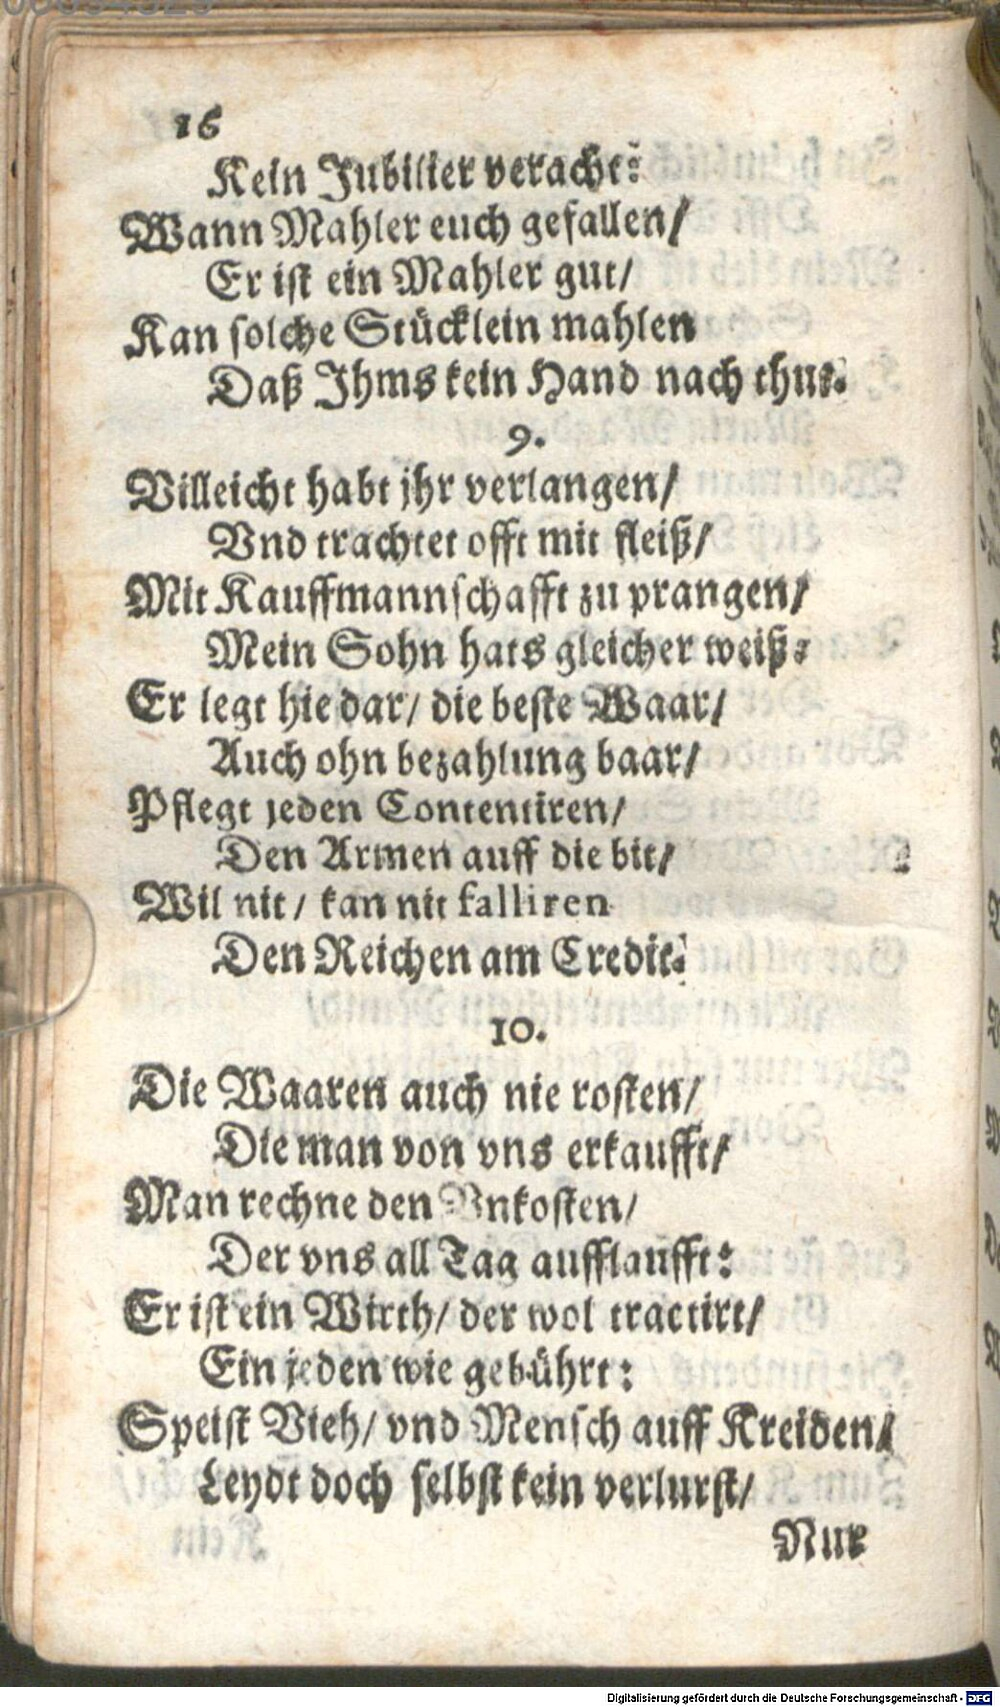 16
Kein Jubilier veracht:
Wann Mahler euch gefallen/
Er ist ein Mahler gut/
Kan solche Stücklein mahlen
Daß Ihms kein Hand nach thut.
9.
Villeicht habt jhr verlangen/
Vnd trachtet offt mit fleiß/
Mit Kauffmannschafft zu prangen/
Mein Sohn hats gleicher weiß:
Er legt hie dar/ die beste Waar/
Auch ohn bezahlung baar/
Pflegt jeden Contentiren/
Den Armen auff die bit/
Wil nit/ kan nit falliren
Den Reichen am Credit.
10.
Die Waaren auch nie rosten/
Die man von vns erkaufft/
Man rechne den Vnkosten/
Der vns all Tag aufflaufft:
Er ist ein Wirth/ der wol tractirt/
Ein jeden wie gebührt:
Speist Vieh/ vnd Mensch auff Kreiden/
Leydt doch selbst kein verlurst/
Nur
Digitalisierung gefördert durch die Deutsche Forschungsgemeinschaft - DFG